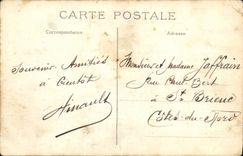 CARTE POSTALE
Correspondance
Adresse
Souvenir Amitiés
à bientôt
Hinault
Monsieur et madame Jaffrain
Rue Paul Bert
à St Brieuc
Côtes-du-Nord